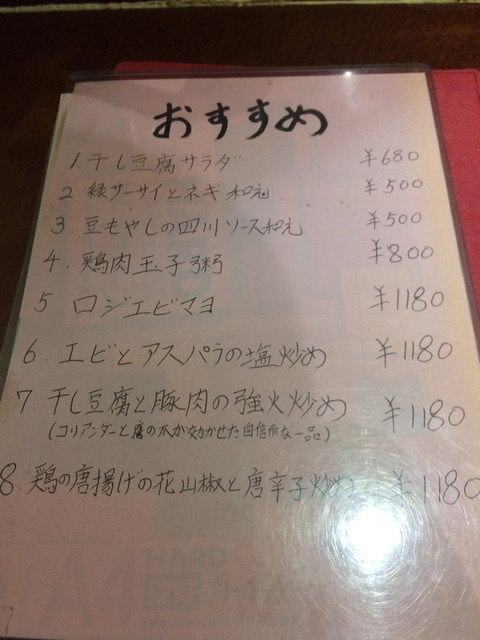 おすすめ
1. 干し豆腐サラダ ¥680
2 緑ザーサイとネギ和え ¥500
3. 豆もやしの四川ソース和え ¥500
4. 鶏肉玉子粥 ¥800
5 ロジエビマヨ ¥1180
6. エビとアスパラの塩炒め ¥1180
7. 干し豆腐と豚肉の強火炒め ¥1180
(コリアンダーと
効かせた自信作な一品)
8. 鶏の唐揚げの花山椒と唐辛子炒め ¥1180
HARD